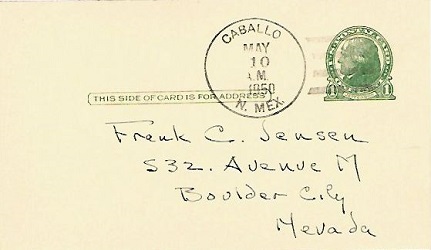 CABALLO
MAY
10
A.M.
1950
N. MEX.
THIS SIDE OF CARD IS FOR ADDRESS
1 1
Frank C. Jensen
532. Avenue M
Boulder City
Nevada